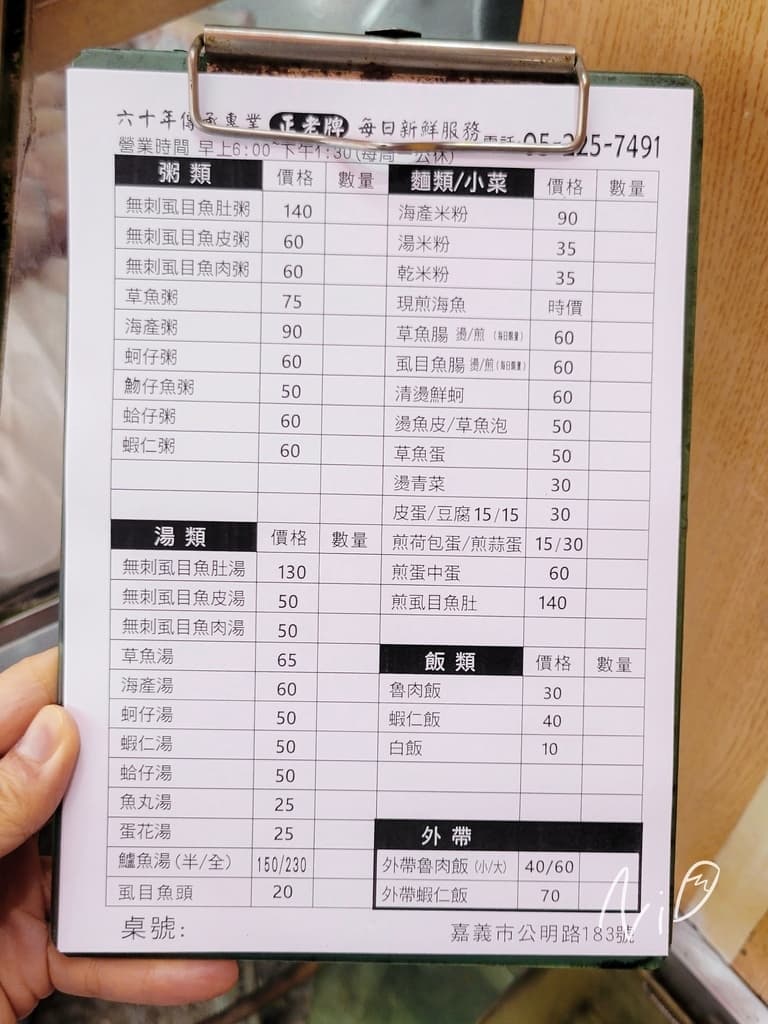 六十年傳承專業 正老牌 每日新鮮服務
電話 05-225-7491
營業時間 早上6:00~下午1:30(每周一公休)
粥類 價格 數量
無刺虱目魚肚粥 140
無刺虱目魚皮粥 60
無刺虱目魚肉粥 60
草魚粥 75
海產粥 90
蚵仔粥 60
魩仔魚粥 50
蛤仔粥 60
蝦仁粥 60
湯類 價格 數量
無刺虱目魚肚湯 130
無刺虱目魚皮湯 50
無刺虱目魚肉湯 50
草魚湯 65
海產湯 60
蚵仔湯 50
蝦仁湯 50
蛤仔湯 50
魚丸湯 25
蛋花湯 25
鱸魚湯(半/全) 150/230
虱目魚頭 20
麵類/小菜 價格 數量
海產米粉 90
湯米粉 35
乾米粉 35
現煎海魚 時價
草魚腸 燙/煎 (每日限量) 60
虱目魚腸 燙/煎 (每日限量) 60
清燙鮮蚵 60
燙魚皮/草魚泡 50
草魚蛋 50
燙青菜 30
皮蛋/豆腐 15/15 30
煎荷包蛋/煎蒜蛋 15/30
煎蛋中蛋 60
煎虱目魚肚 140
飯類 價格 數量
魯肉飯 30
蝦仁飯 40
白飯 10
外帶
外帶魯肉飯 (小/大) 40/60
外帶蝦仁飯 70
桌號:
嘉義市公明路183號